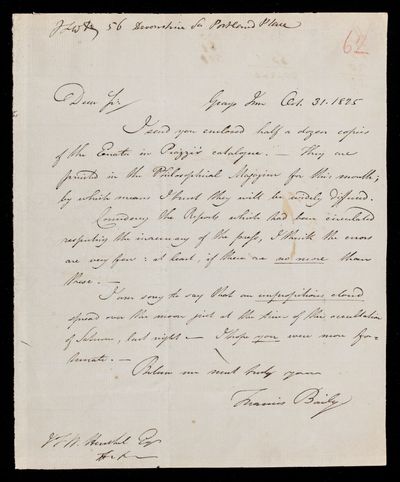 J F W H, 56 Devonshire St. Portland Place
62
Dear Sir,
Grays Inn Oct. 31. 1825
I send you enclosed half a dozen copies
of the Errata in Piazzi's catalogue. — They are
printed in the Philosophical Magazine for this month;
by which means I trust they will be widely diffused.
Considering the Reports which had been circulated
respecting the inaccuracy of the press, I think the errors
are very few: at least, if there are no more than
these. —
I am sorry to say that an unpropitious cloud
spread over the moon just at the time of the occultation
of Saturn, last night — I hope you were more for=
tunate. —
Believe me most truly yours
Francis Baily
J F W. Herschel Esq